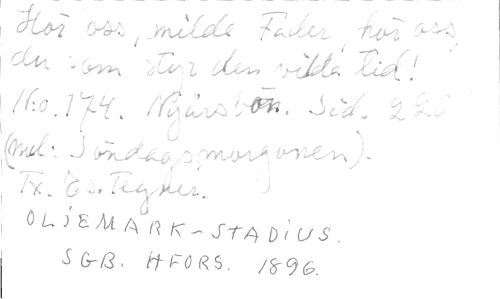 Hör oss, milde Fader, hör oss,
du som styr den vilda tid!
N:o. 174. Nyårsbön. Sid. 220
(mel: Söndagsmorgonen).
Tx. Es. Tegnér.
OLJEMARK-STADIUS.
SGB. HFORS. 1896.